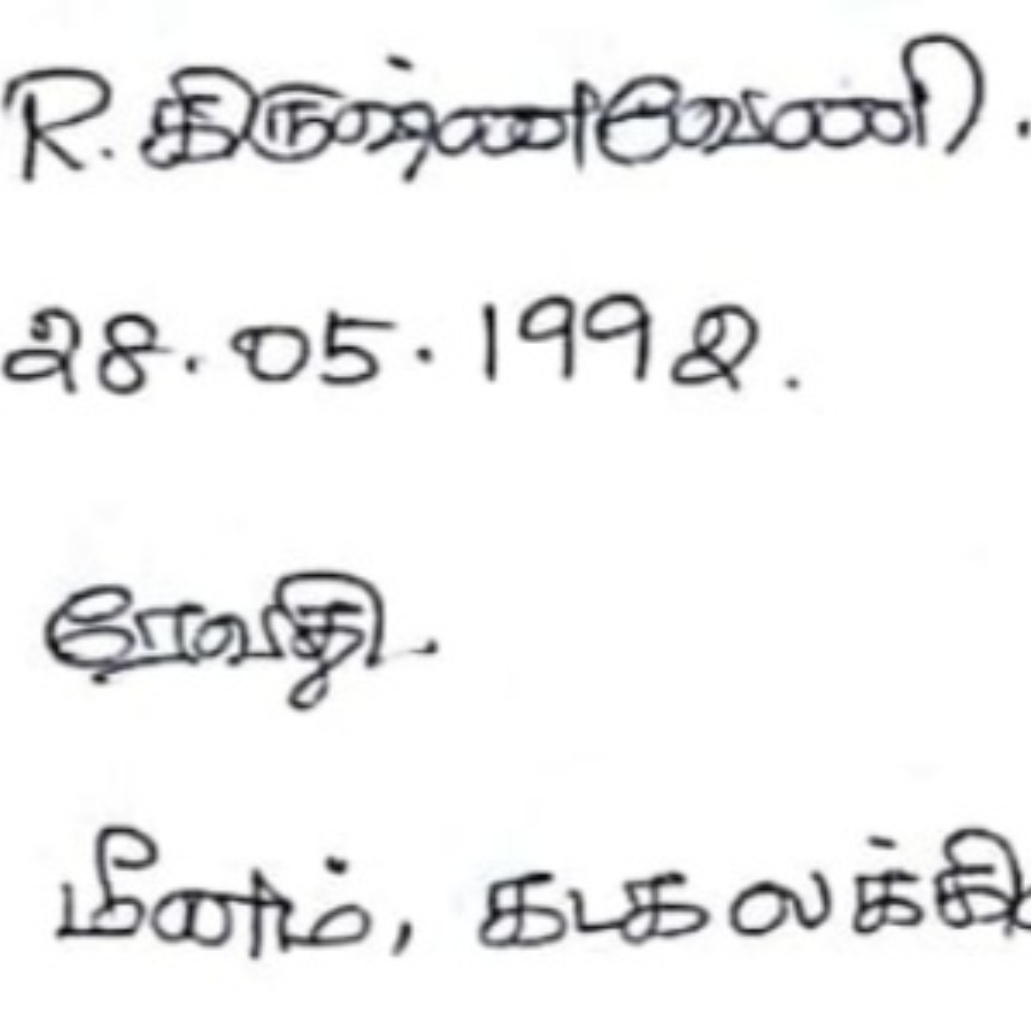 R. கிருஷ்ணவேணி.
28.05.1992.
ரேவதி.
மீனம், கடகலக்கி